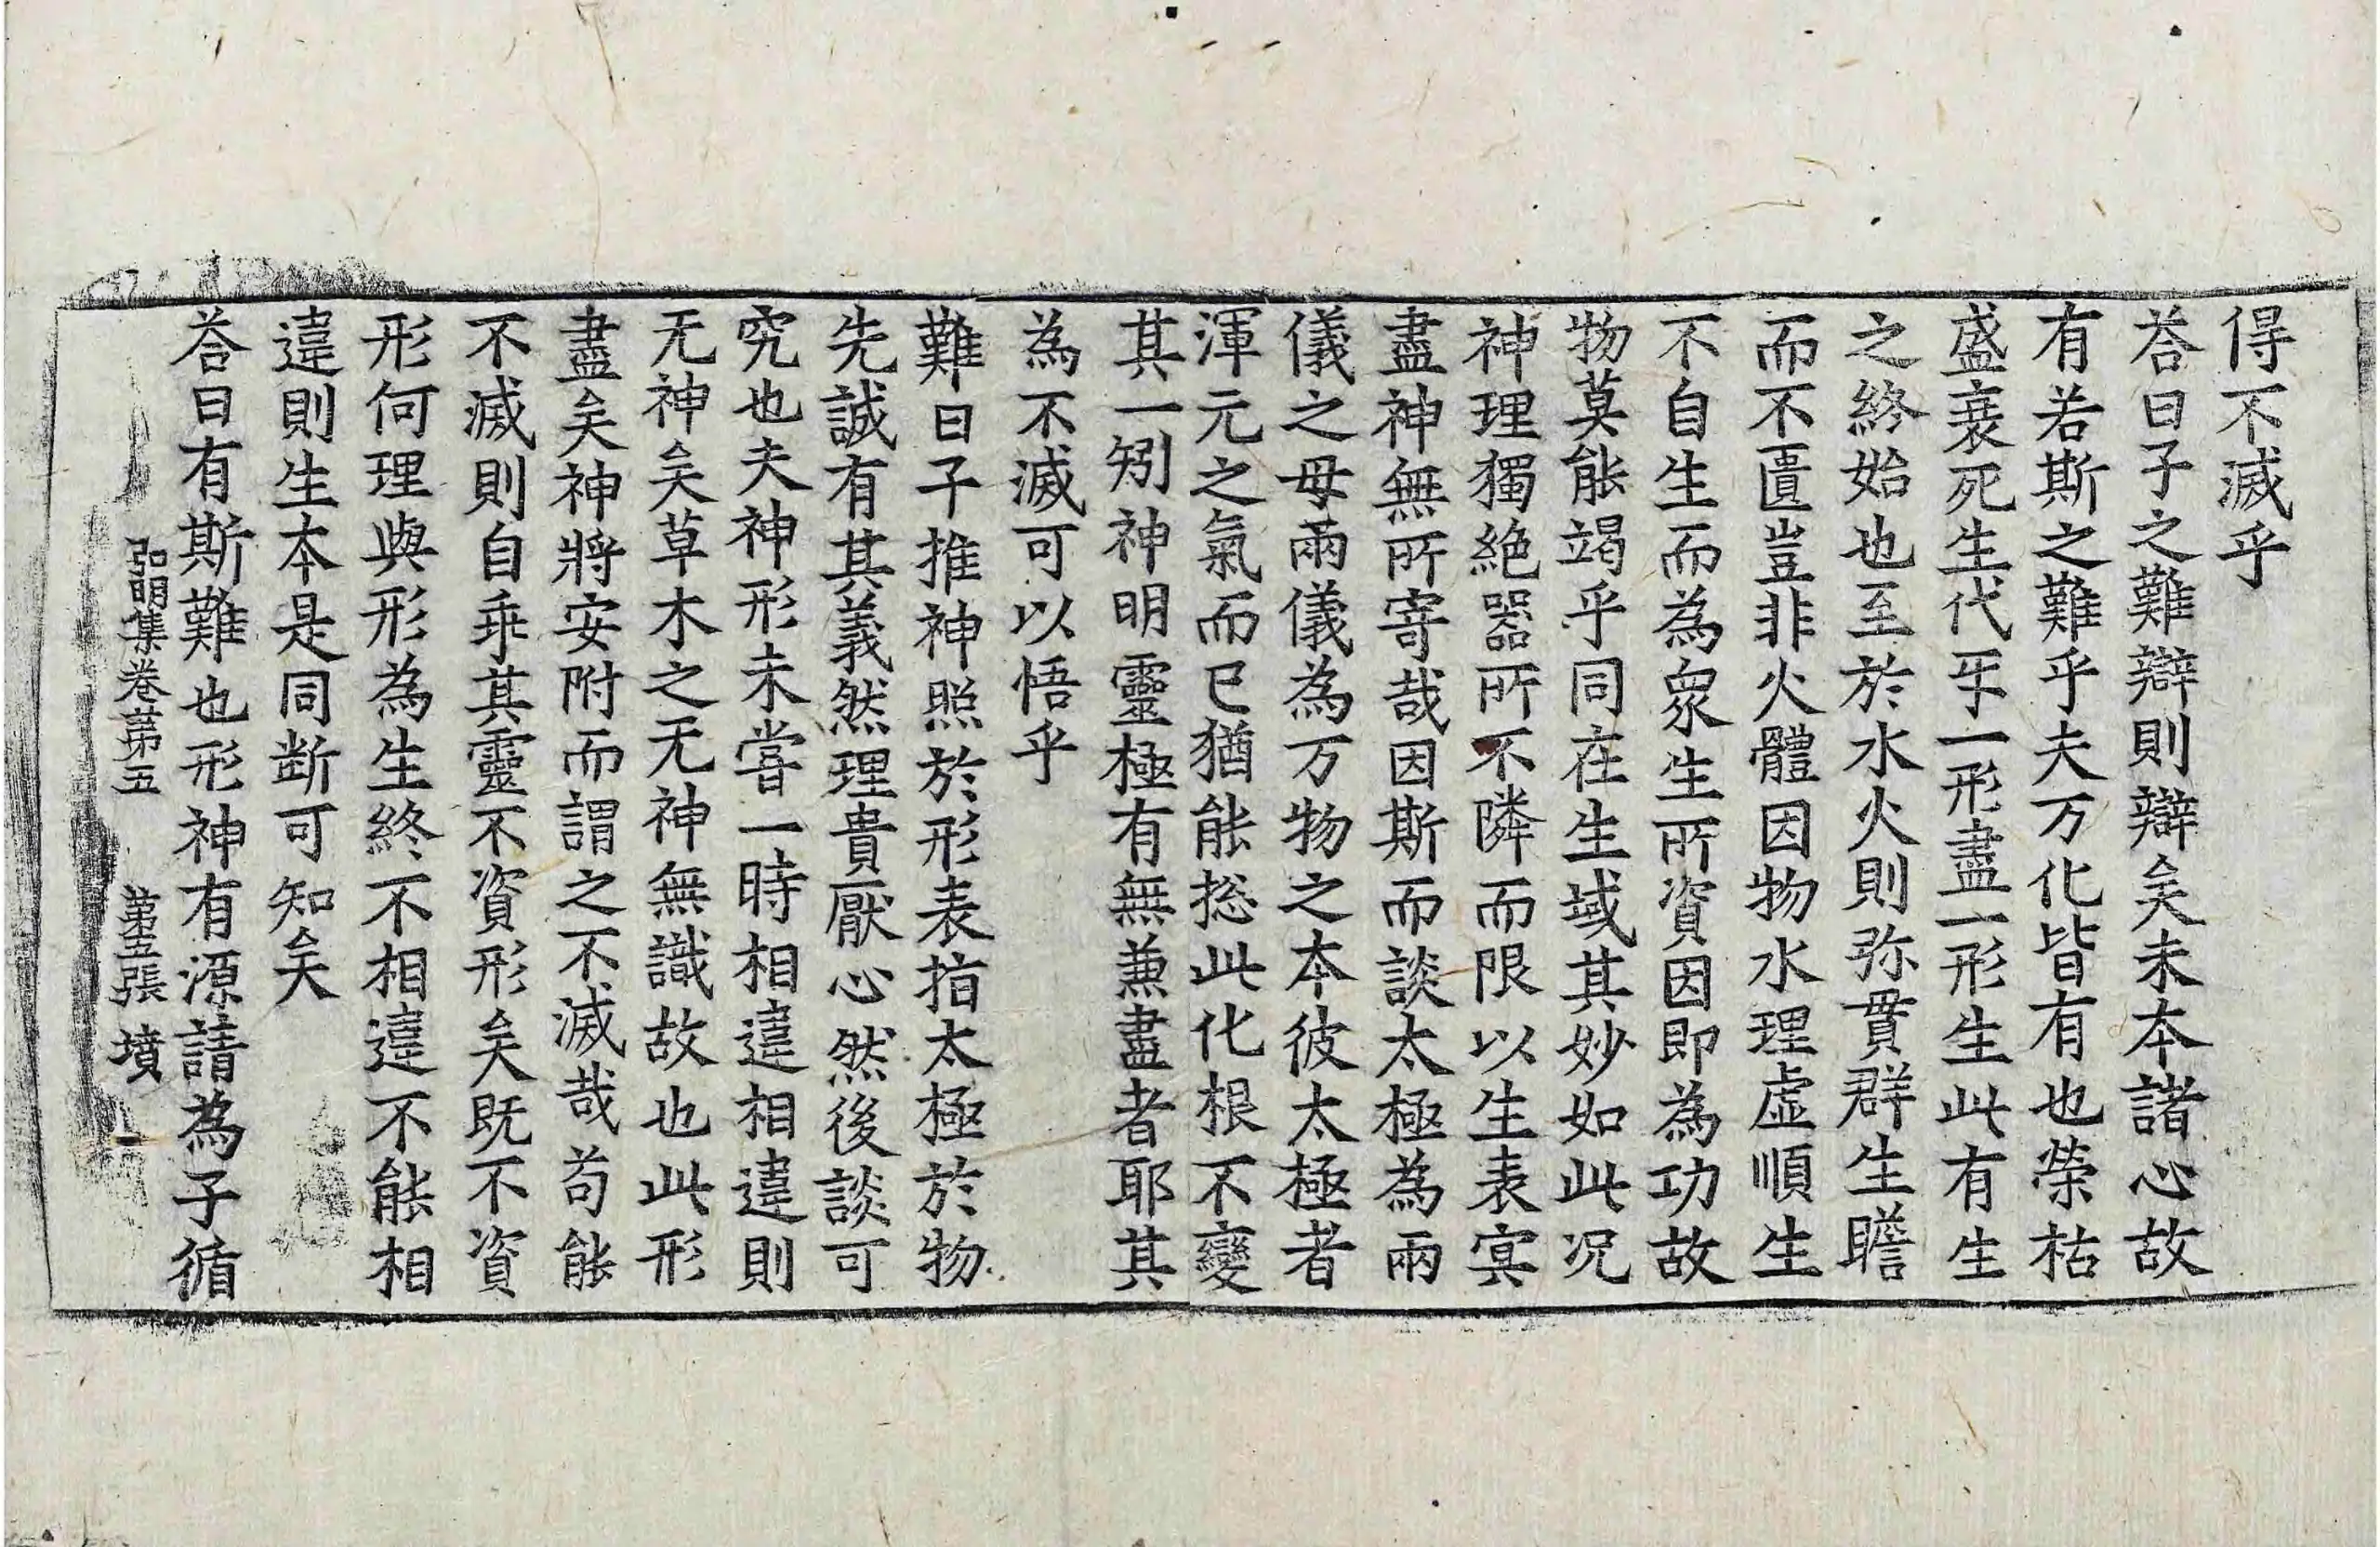 得不滅乎
荅曰子之難辯則辯矣未本諸心故
有若斯之難乎夫万化皆有也榮枯
盛衰死生代牙一形盡一形生此有生
之終始也至於水火則弥貫群生瞻
而不匱豈非火體因物水理虛順生
不自生而為衆生所資因即為功故
物莫能竭乎同在生域其妙如此况
神理獨絶器所不隣而限以生表冥
盡神無所寄哉因斯而談太極為兩
儀之母兩儀為万物之本彼太極者
渾元之氣而已猶能揔此化根不變
其一矧神明靈極有無兼盡者耶其
為不滅可以悟乎
難曰子推神照於形表指太極於物
先誠有其義然理貴厭心然後談可
究也夫神形未嘗一時相違相違則
无神矣草木之无神無識故也此形
盡矣神將安附而謂之不滅哉苟能
不滅則自乖其靈不資形矣既不資
形何理與形為生終不相違不能相
違則生本是同断可知矣
荅曰有斯難也形神有源請為子循
弘明集卷第五 第五張 墳